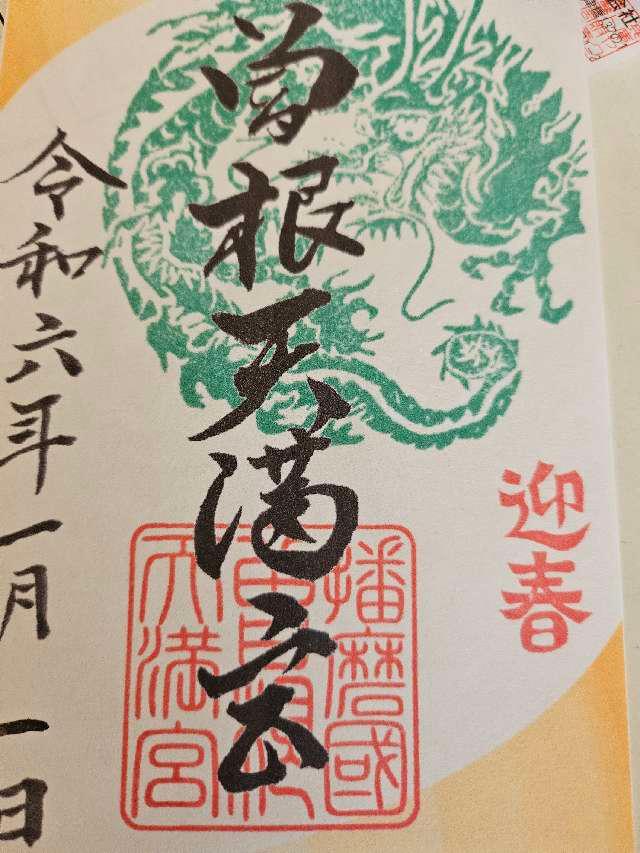 迎春
曽根天満宮
播磨國
曽根
天満宮
令和六年一月一日